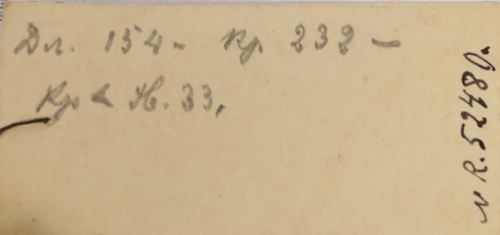 Дл. 154 - Кр 232 -
Кр < Н. 33,
N R. 52480.